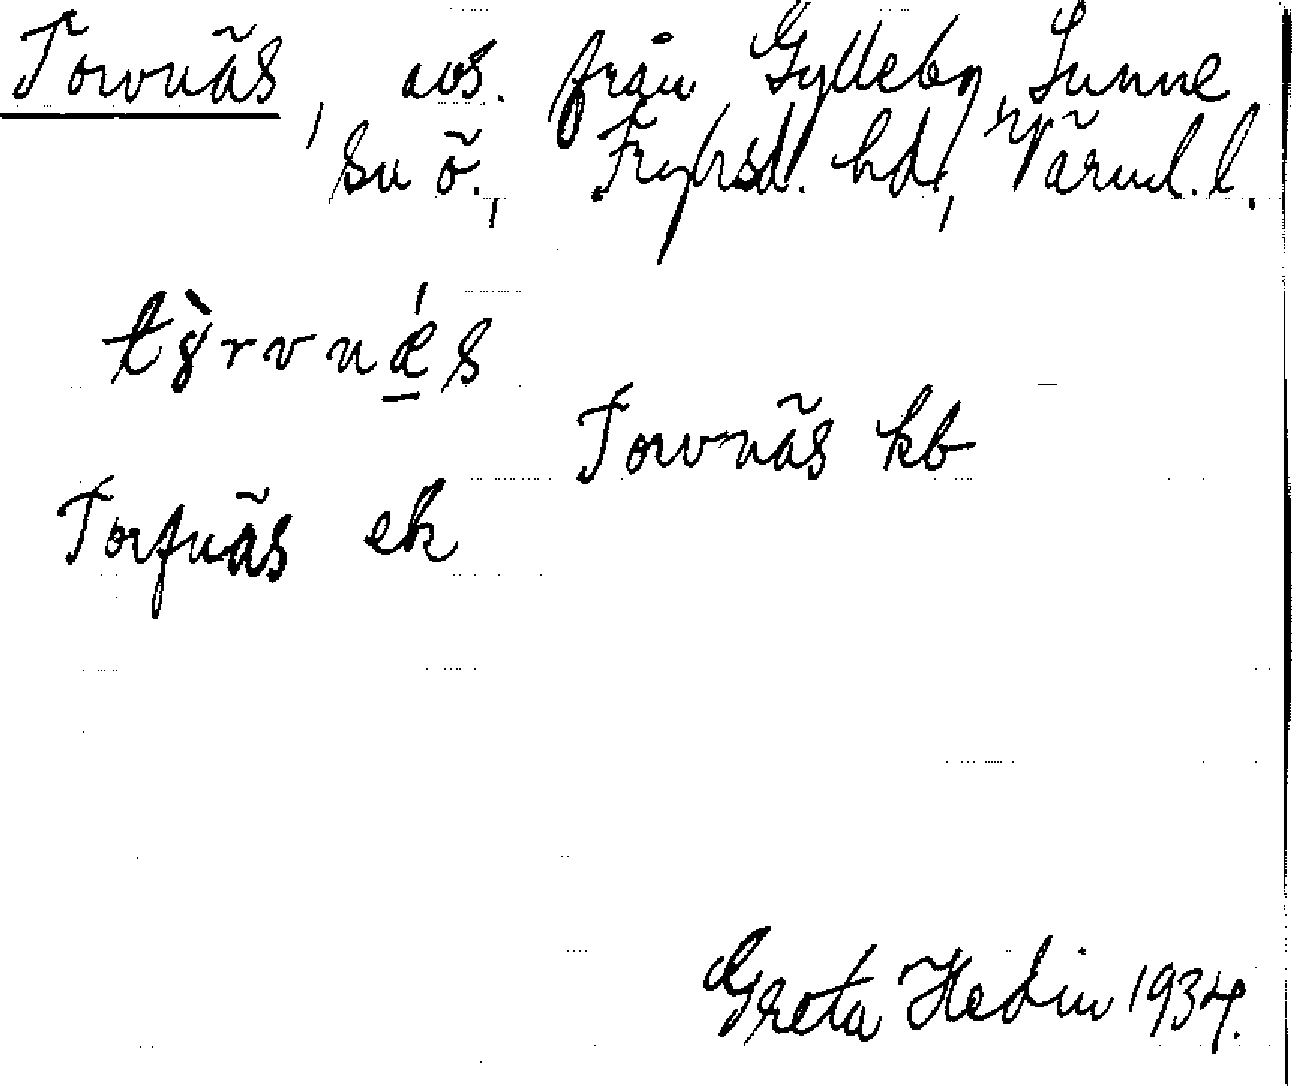 Torvnäs, avs. från Gylleby, Sunne
sn ö., Fryksd. hd, Värml. l.
tɣ̀rvnǽ̱s
Torvnäs kb
Torfnäs ek
Greta Hedin 1934.